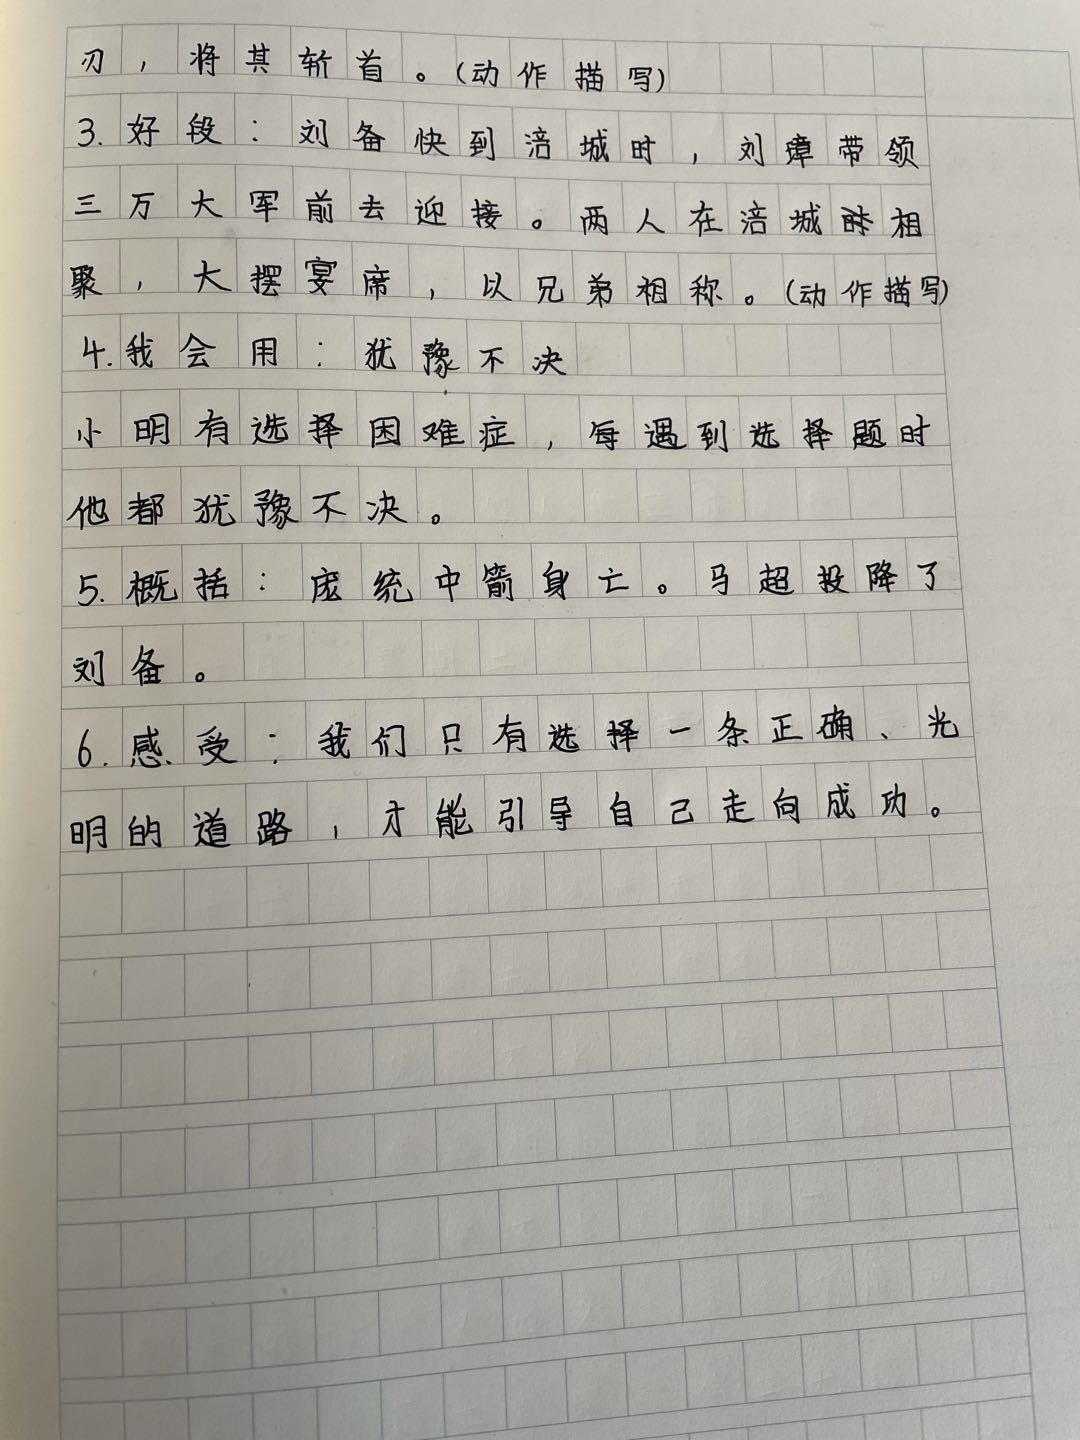 刃，将其斩首。(动作描写)
3.好段：刘备快到涪城时，刘璋带领
三万大军前去迎接。两人在涪城时相
聚，大摆宴席，以兄弟相称。(动作描写)
4.我会用：犹豫不决
小明有选择困难症，每遇到选择题时
他都犹豫不决。
5.概括：庞统中箭身亡。马超投降了
刘备。
6.感受：我们只有选择一条正确、光
明的道路，才能引导自己走向成功。